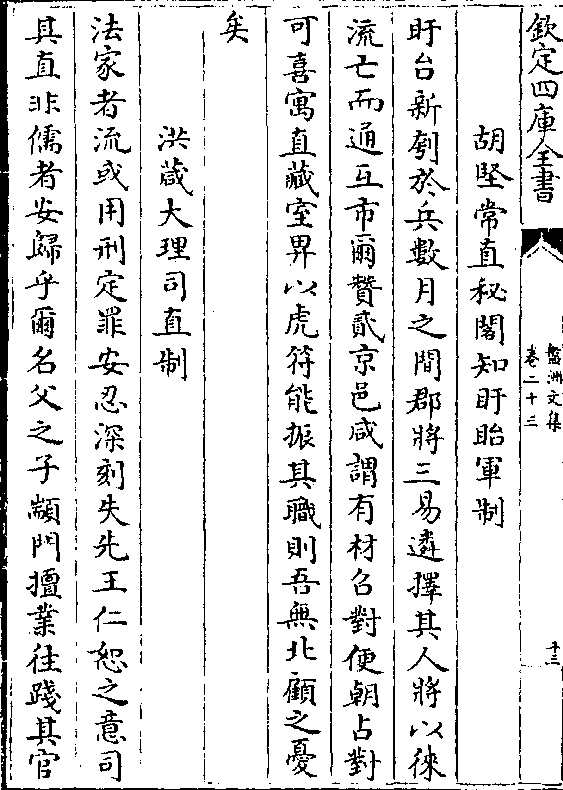 欽定四庫全書
盤洲文集
卷二十三
十三
胡堅常直秘閣知盱眙軍制
盱台新刳於兵數月之間郡將三易遴擇其人將以徠
流亡而通互市爾贊貳京邑咸謂有材召對便朝占對
可喜寓直藏室畀以虎符能振其職則吾無北顧之憂
矣
洪蕆大理司直制
法家者流或用刑定罪安忍深刻失先王仁恕之意司
具直非儒者安歸乎爾名父之子顓門擅業往踐其官